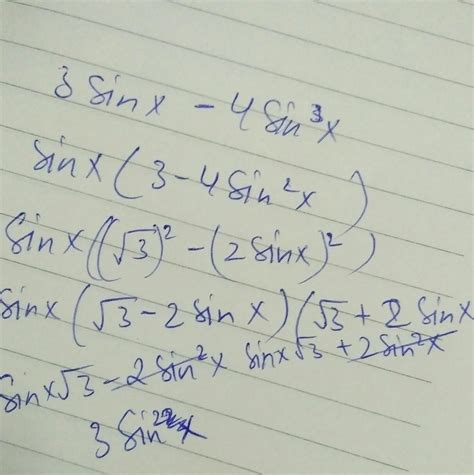 3 Sin x - 4 Sin³x
Sin x (3 - 4 Sin²x)
Sin x ((√3)² - (2 Sin x)²)
Sin x (√3 - 2 Sin x) (√3 + 2 Sin x
Sin x √3 - 2 Sin²x Sin x √3 + 2 Sin²x
3 Sin²x